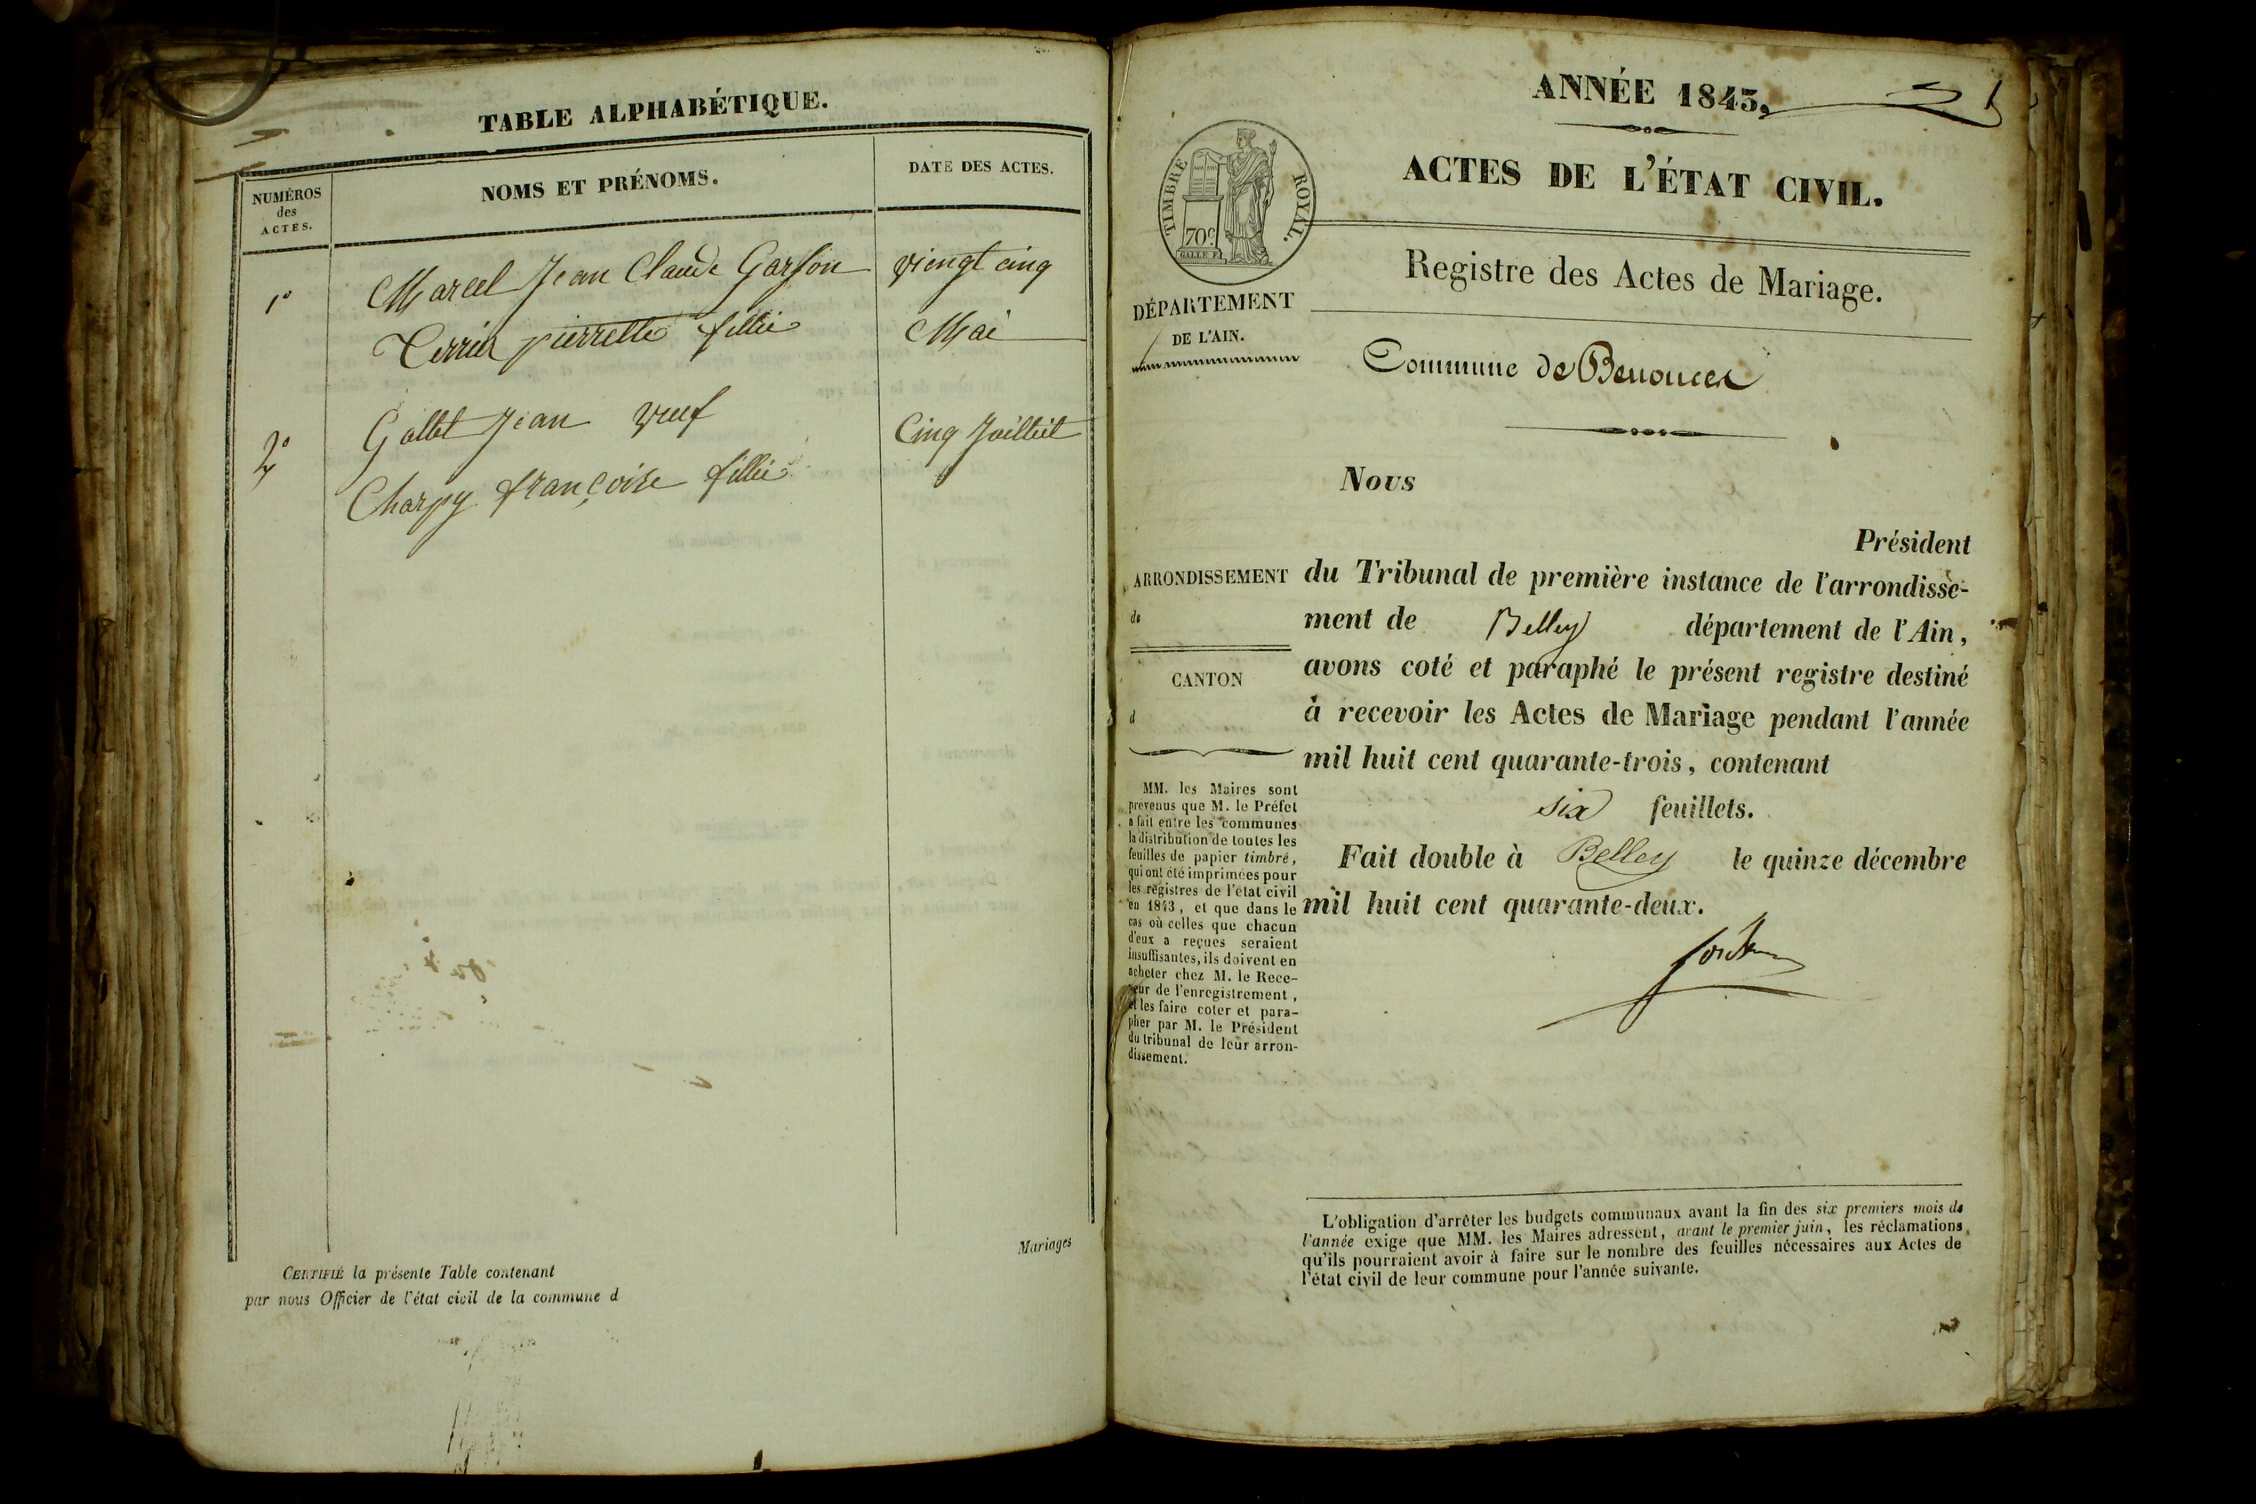 TABLE ALPHABÉTIQUE.
NUMÉROS
des
ACTES.
NOMS ET PRÉNOMS.
DATE DES ACTES.
1° Marcel Jean Claude Garson viengt cinq
Terrier pierrette fillie Mai
2° Gallet Jean veuf Cinq Joilliet
Charpy françoise fillie
Mariages
CERTIFIÉ la présente Table contenant
par nous Officier de l'état civil de la commune d
ANNÉE 1843,
ACTES DE L'ÉTAT CIVIL.
TIMBRE ROYAL.
70c
GALLE F.
Registre des Actes de Mariage.
DÉPARTEMENT
DE L'AIN.
Commune de Benonces
Nous
Président
du Tribunal de première instance de l'arrondisse-
ment de Belley département de l'Ain,
avons coté et paraphé le présent registre destiné
à recevoir les Actes de Mariage pendant l'année
mil huit cent quarante-trois, contenant
six feuillets.
Fait double à Belley le quinze décembre
mil huit cent quarante-deux.
ARRONDISSEMENT
de
CANTON
d
MM. les Maires sont
prévenus que M. le Préfet
a fait entre les communes
la distribution de toutes les
feuilles de papier timbré,
qui ont été imprimées pour
les registres de l'état civil
en 1843, et que dans le
cas où celles que chacun
d'eux a reçues seraient
insuffisantes, ils doivent en
acheter chez M. le Rece-
veur de l'enregistrement,
et les faire coter et para-
pher par M. le Président
du tribunal de leur arron-
dissement.
L'obligation d'arrêter les budgets communaux avant la fin des six premiers mois de
l'année exige que MM. les Maires adressent, avant le premier juin, les réclamations
qu'ils pourraient avoir à faire sur le nombre des feuilles nécessaires aux Actes de
l'état civil de leur commune pour l'année suivante.